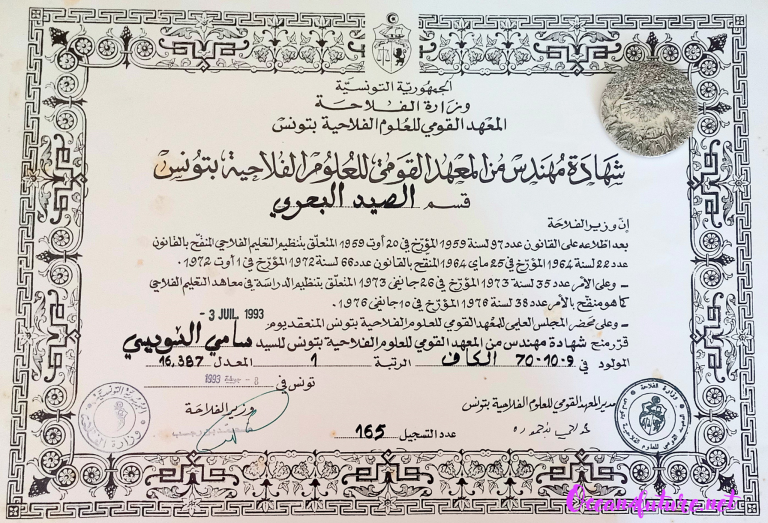 الجمهورية التونسية
وزارة الفلاحة
المعهد القومي للعلوم الفلاحية بتونس
شهادة مهندس من المعهد القومي للعلوم الفلاحية بتونس
قسم الصيد البحري
إنّ وزير الفلاحة
بعد اطلاعه على القانون عدد 97 لسنة 1959 المؤرخ في 20 أوت 1959 المتعلق بتنظيم التعليم الفلاحي المنقّح بالقانون
عدد 22 لسنة 1964 المؤرخ في 25 ماي 1964 المنقح بالقانون عدد 66 لسنة 1972 المؤرخ في 1 أوت 1972.
– وعلى الأمر عدد 35 لسنة 1973 المؤرخ في 26 جانفي 1973 المتعلق بتنظيم الدراسة في معاهد التعليم الفلاحي
كما هو منقح بالأمر عدد 38 لسنة 1976 المؤرخ في 10 جانفي 1976.
– وعلى محضر المجلس العلمي للمعهد القومي للعلوم الفلاحية بتونس المنعقد يوم - 3 JUIL 1993
قرّر منح شهادة مهندس من المعهد القومي للعلوم الفلاحية بتونس للسيد سامي
المولود في 9-10-70 الكاف الرتبة 1 المعدل 16,387
تونس في 8 - 1993
مدير المعهد القومي للعلوم الفلاحية بتونس
وزير الفلاحة
عدد التسجيل 165
Oceanfuture.net